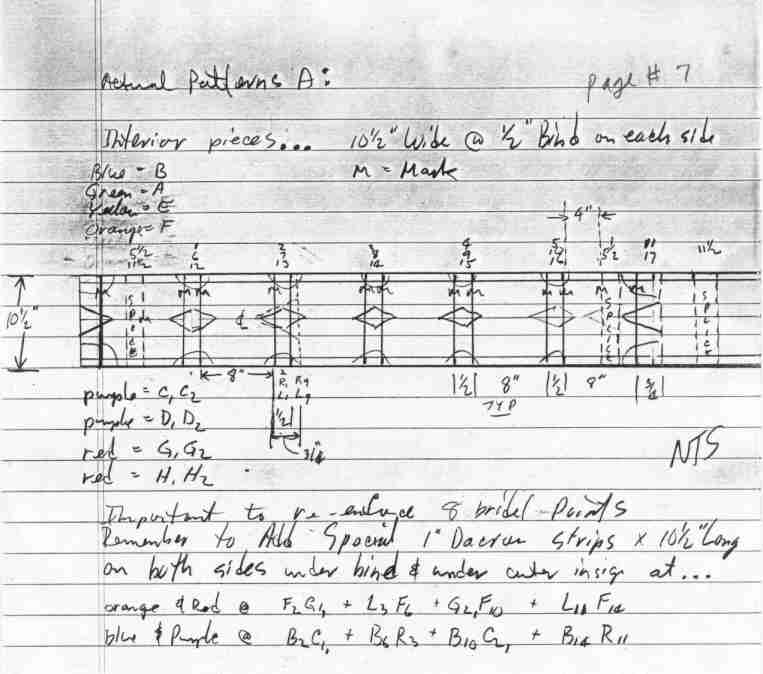 Actual Patterns A:
page # 7
Interior pieces... 10½" Wide @ ½" Bind on each side
Blue = B
M = Mark
Green = A
= E
Orange = F
4"
5½
11½
1
6
12
2
7
13
3
8
14
4
9
15
5
10
16
½
5½
11
17
11½
M M M M M M M M M
SPLICE
SPLICE
SPLICE
10½"
℄
8"
2
R₁ R₉
L₁ L₉
½
¾"
½ 8" ½ 8" ¾
TYP
purple = C, C₂
purple = D, D₂
red = G, G₂
red = H, H₂
NTS
Important to re-enforce 8 bridel Points
Remember to Add Special 1" Dacron strips x 10½" Long
on both sides under bind & under center insign at...
orange & Red @ F₂G₁, + L₃F₆ + G₂,F₁₀ + L₁₁F₁₄
blue & Purple @ B₂C₁, + B₆R₃ + B₁₀C₂, + B₁₄R₁₁